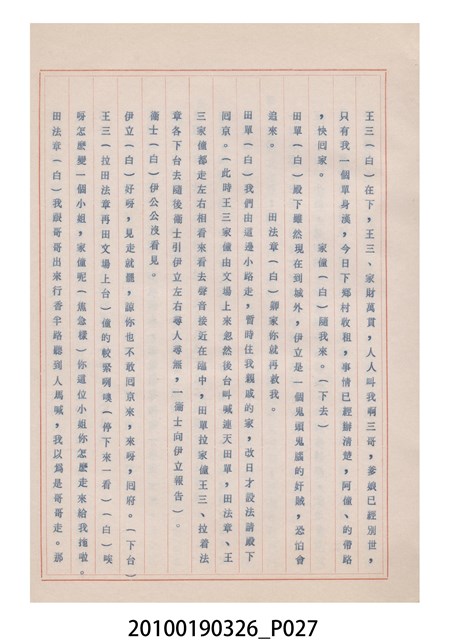 王三（白）在下，王三、家財萬貫，人人叫我啊三哥，爹娘已經別世，
只有我一個單身漢，今日下鄉村收租，事情已經辦清楚，阿僮、的帶路
，快囘家。　　　　　家僮（白）隨我來。（下去）
田單（白）殿下雖然現在到城外，伊立是一個鬼頭鬼腦的奸賊，恐怕會
追來。　　　　田法章（白）卿家你就再救我。
田單（白）我們由這邊小路走，暫時住我親戚的家，改日才設法請殿下
囘京。（此時王三家僮由文場上來忽然後台叫喊連天田單，田法章、王
三家僮都走左右相看來看去聲音接近在臨中，田單拉家僮王三、拉着法
章各下台去隨後衞士引伊立左右尋人尋無，一衞士向伊立報告）。
衞士（白）伊公公沒看見。
伊立（白）好呀，見走就罷，諒你也不敢囘京來，來呀，囘府。（下台）
王三（拉田法章再由文場上台）僮的較緊咧噢（停下來一看）（白）唉
呀怎麼變一個小姐，家僮呢（焦急樣）你這位小姐你怎麼走來給我拖啦。
田法章（白）我跟哥哥出來行香半路聽到人馬喊，我以爲是哥哥走。那
20100190326_P027